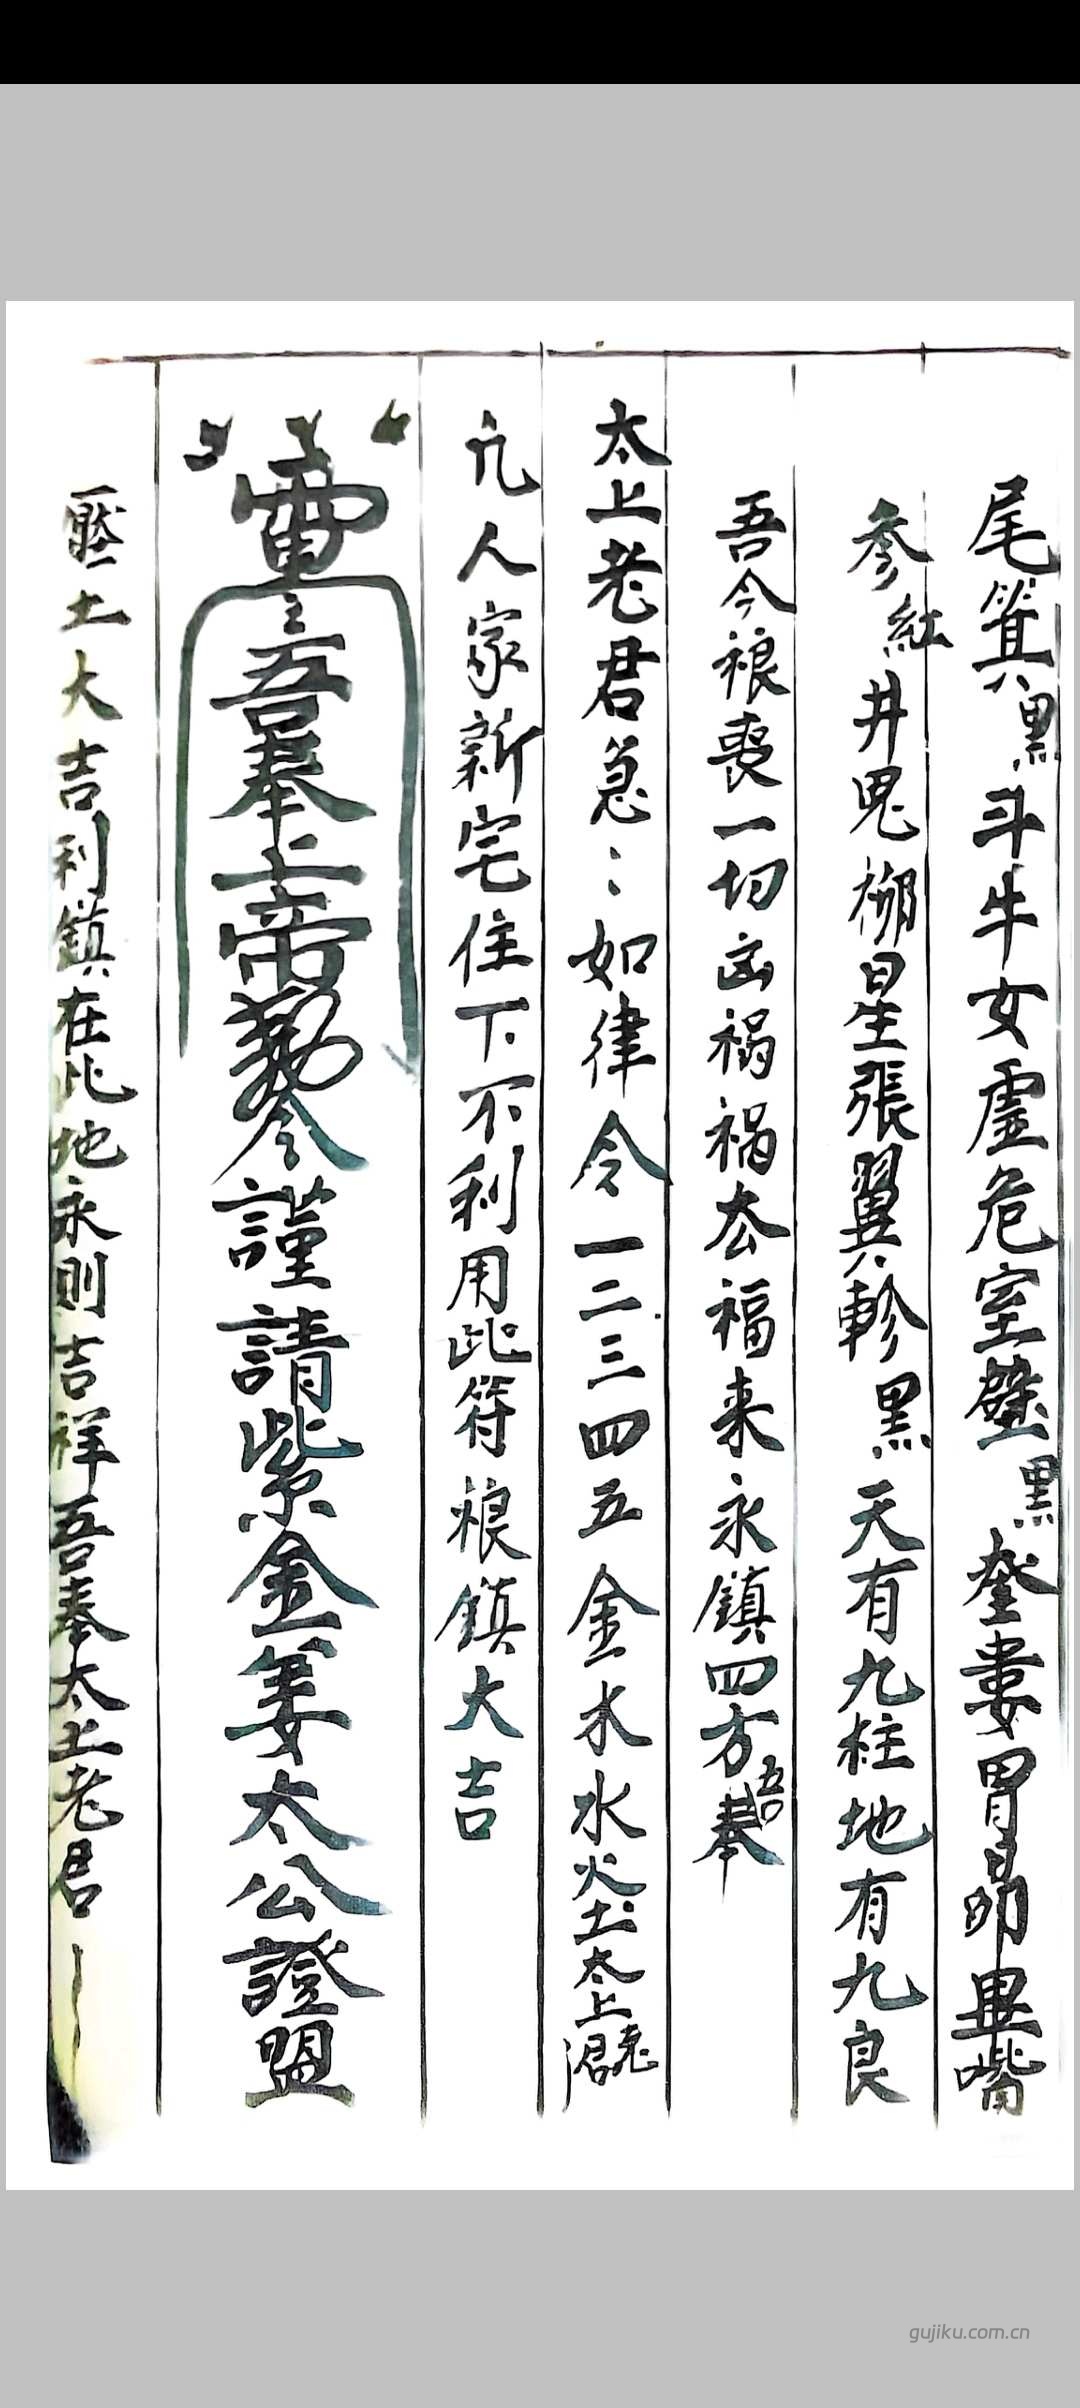 尾箕黑斗牛女虛危室壁黑奎婁胃昴畢嘴
參紅井鬼柳星張翼軫黑天有九柱地有九良
吾今禳喪一切凶禍禍去福来永鎮四方吾奉
太上老君急〻如律令一二三四五金木水火土太上老君
凡人家新宅住下不利用此符禳鎮大吉
吾奉上帝勅令謹請紫金姜太公證盟
土大吉利鎮在此地永則吉祥吾奉太上老君
gujiku.com.cn